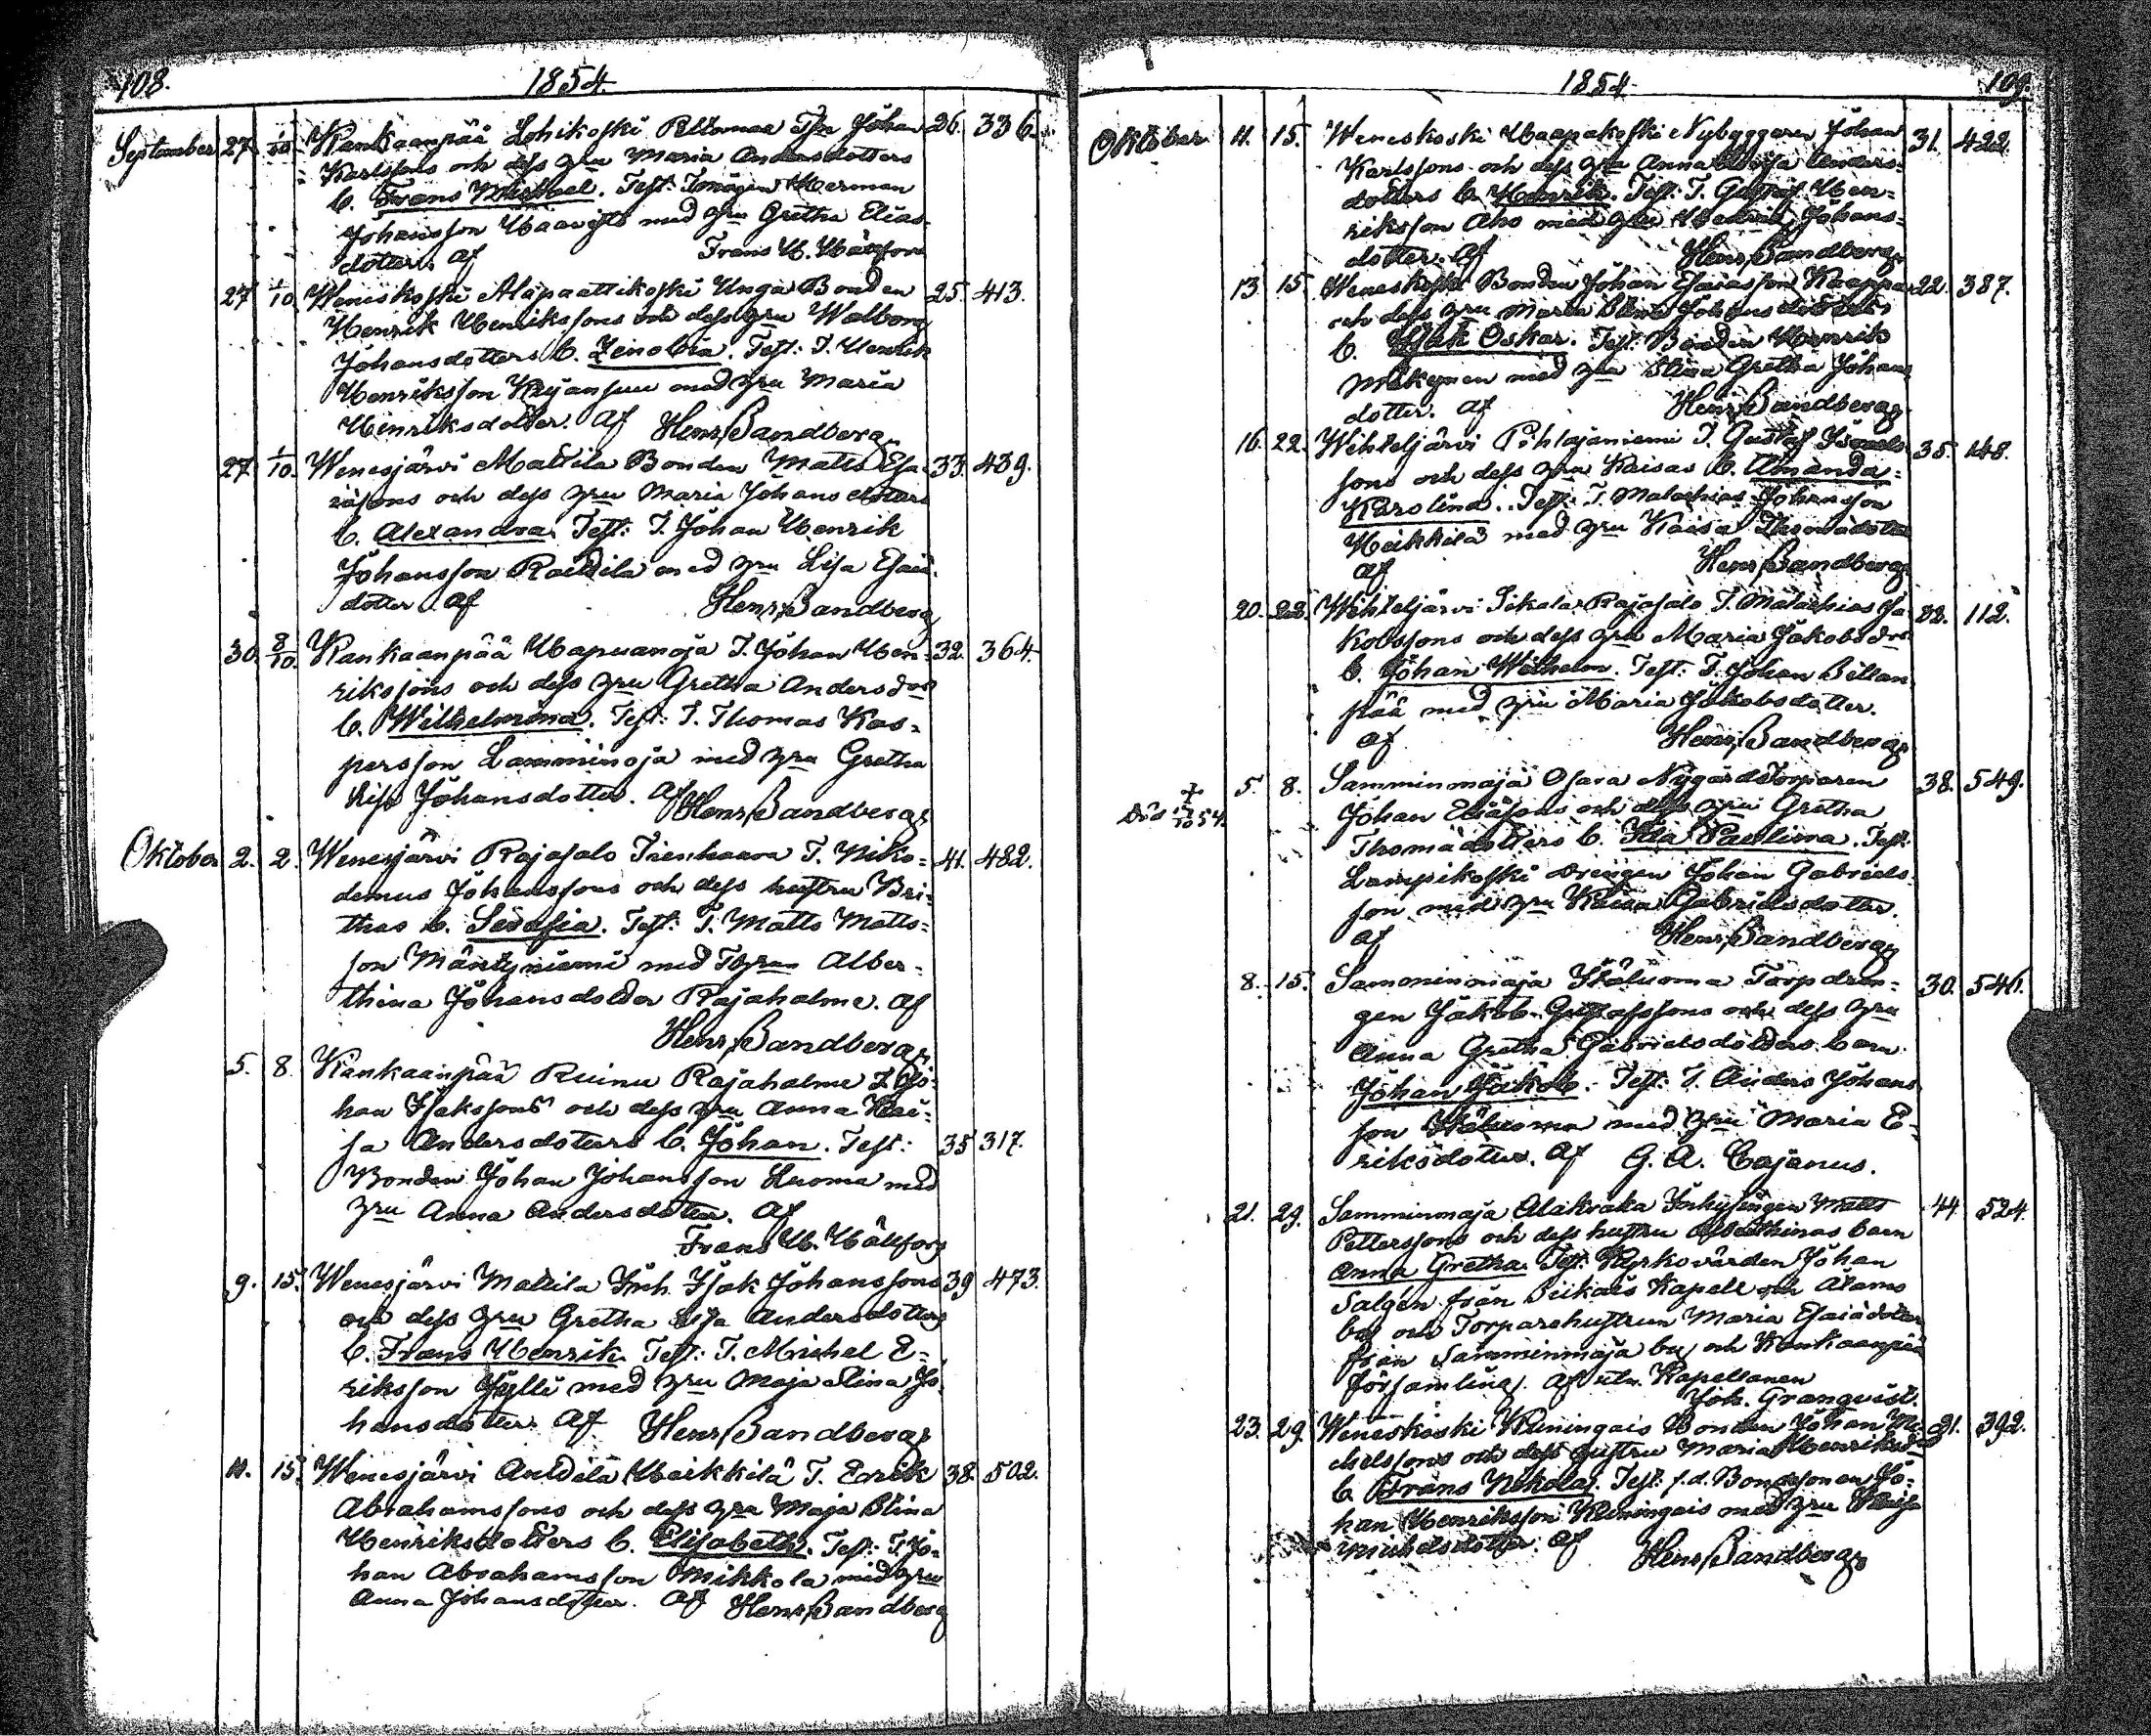 108. 1854.
September 27 1/10 Kankaanpää Lohikoski Johan 26. 336.
Karlssons och dess hru Maria Andersdotters
b. Frans Mikael. Test: Herman
Johansson Haavisto med hru Gretha Elias-
dotter. af Frans H. Hällfors
27 1/10 Weneskoski Alapaattikoski Unga Bonden 25. 413.
Henrik Henrikssons och dess hru Walborg
Johansdotters b. Zenobia. Test: T. Henrik
Henriksson med hru Maria
Henriksdotter. af Henr. Sandberg
27 1/10 Wenesjärvi Mattila Bonden Matts Esa- 33. 439.
iäsons och dess hru Maria Johansdotters
b. Alexandra. Test: T. Johan Henrik
Johansson med hru Lisa Esaiæ-
dotter. af Henr. Sandberg
30. 8/10. Kankaanpää Hapuanoja T. Johan Hen- 32. 364.
rikssons och dess hru Gretha Andersdrs
b. Wilhelmina. Test: T. Thomas Kas-
persson Lamminoja med hru Gretha
Lisa Johansdotter. af Henr. Sandberg
Oktober 2. 2. Wenesjärvi Rajasalo T. Niko- 41. 482.
demus Johanssons och dess hustru Bri-
thas b. Serafia. Test: T. Matts Matts-
son Mäntyniemi med Thrun Alber-
thina Johansdotter Rajaholme. af
Henr. Sandberg
5. 8. Kankaanpää Ruinu Rajaholme T. Jo-
han Isakssons och dess hru Anna Kai-
sa Andersdotters b. Johan. Test: 35 317.
Bonden Johan Johansson Luoma med
hru Anna Andersdotter. af
Frans H. Hällfors
9. 15. Wenesjärvi Mattila Inh. Isak Johanssons 39 473.
och dess hru Gretha Lisa Andersdotters
b. Frans Henrik. Test: T. Michel E-
riksson Jylli med hru Maja Stina Jo-
hansdotter. af Henr. Sandberg
11. 15. Wenesjärvi Anttila Heikkilä T. Erik 38. 502.
Abrahamssons och dess hru Maja Stina
Henriksdotters b. Elisabeth. Test: T. Jo-
han Abrahamsson Mikkola med hru
Anna Johansdotter. af Henr. Sandberg
1854 109.
Oktober 11. 15. Weneskoski Haapakoski Nybyggaren Johan 31. 422.
Karlssons och dess hru Anna Lovisa Anders-
dotters b. Henrik. Test: T. Gustaf Hen-
riksson Aho med hru Hedvig Johans-
dotter. af Henr. Sandberg
13. 15. Weneskoski Bonden Johan Esaiasson 22. 387.
och dess hru Maria Stina Johansdotters
b. Isak Oskar. Test: Bonden Henrik
Mäkynen med hru Stina Gretha Johans-
dotter. af Henr. Sandberg
16. 22. Wihteljärvi Pihlajaniemi T. Gustaf Israels- 35. 148.
sons och dess hru Kaisas b. Amanda
Karolina. Test: T. Malachias Johansson
Heikkilä med hru Kaisa Thomædotter
af Henr. Sandberg
20. 22. Wihteljärvi Sikala Rajasalo T. Malachias Ja- 32. 112.
kobssons och dess hru Maria Jakobsdrs
b. Johan Wilhelm. Test: T. Johan Sillan-
pää med hru Maria Jakobsdotter.
af Henr. Sandberg
5. 8. Samminmaja Osara Nygård Torparen 38. 549.
Johan Eliæsons och dess hru Gretha
Thomædotters b. Ida Paulina. Test:
Lampikoski Drengen Johan Gabriels-
son med hru Kaisa Gabrielsdotter.
af Henr. Sandberg
8. 15. Samminmaja Torpdren- 30. 546.
gen Jakob Gustafssons och dess hru
Anna Gretha Gabrielsdotters barn
Johan Jakob. Test: T. Anders Johans-
son med hru Maria E-
riksdotter. af G. A. Cajanus.
21. 29. Samminmaja Alakraka Inhysingen Matts 44. 524.
Petterssons och dess hustru Albertinas barn
Anna Gretha. Test: Kyrkovärden Johan
Salgén från Siikais Kapell och Alams
by och Torparehustrun Maria Esaiædotter
från Samminmaja by och Kankaanpää
församling. af Kapellanen
Joh. Granqvist.
23. 29. Weneskoski Kuningais Bonden Johan Mi- 21. 392.
chelssons och dess hustru Maria Henriksdrs
b. Frans Nikolai. Test: f.d. Bondesonen Jo-
han Henriksson Kuningais med hru Kaisa
Michelsdotter. af Henr. Sandberg